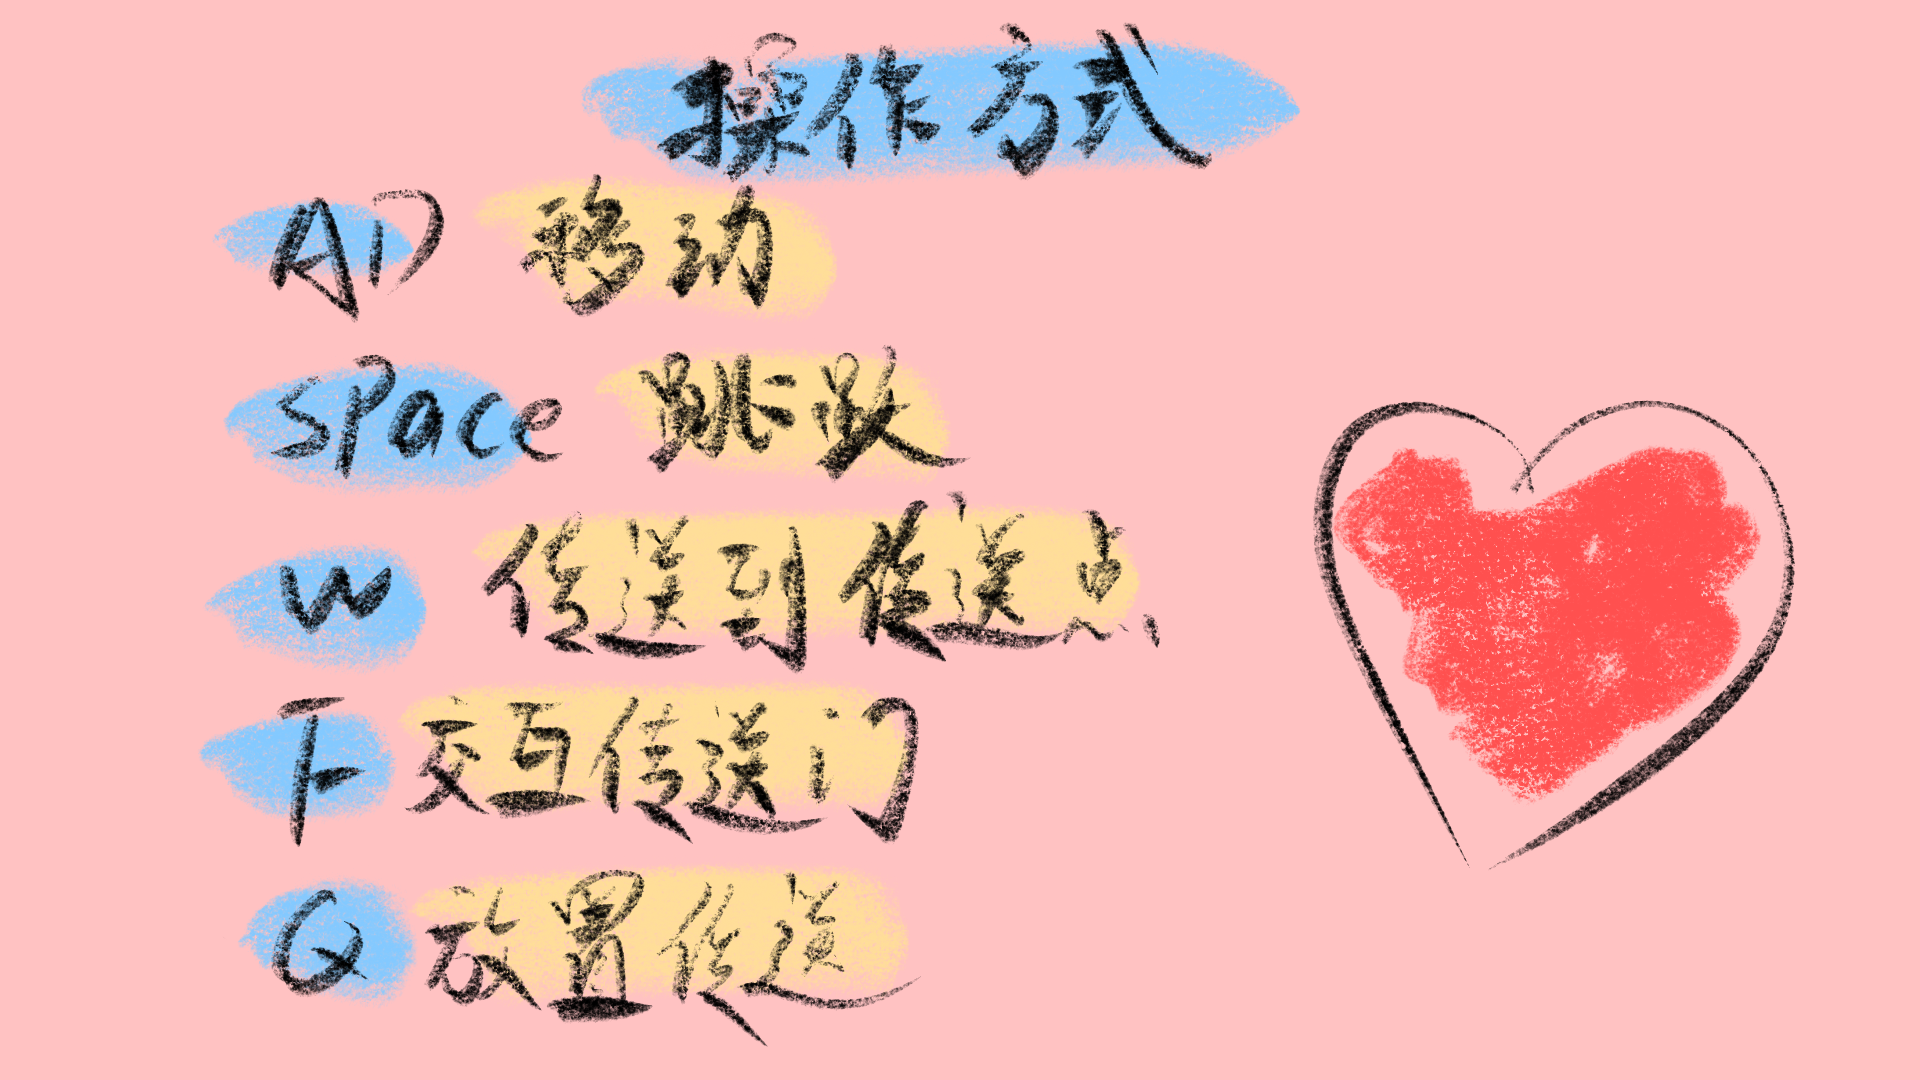 操作方式
AD 移动
space 跳跃
W 传送到传送点
F 交互传送门
Q 放置传送